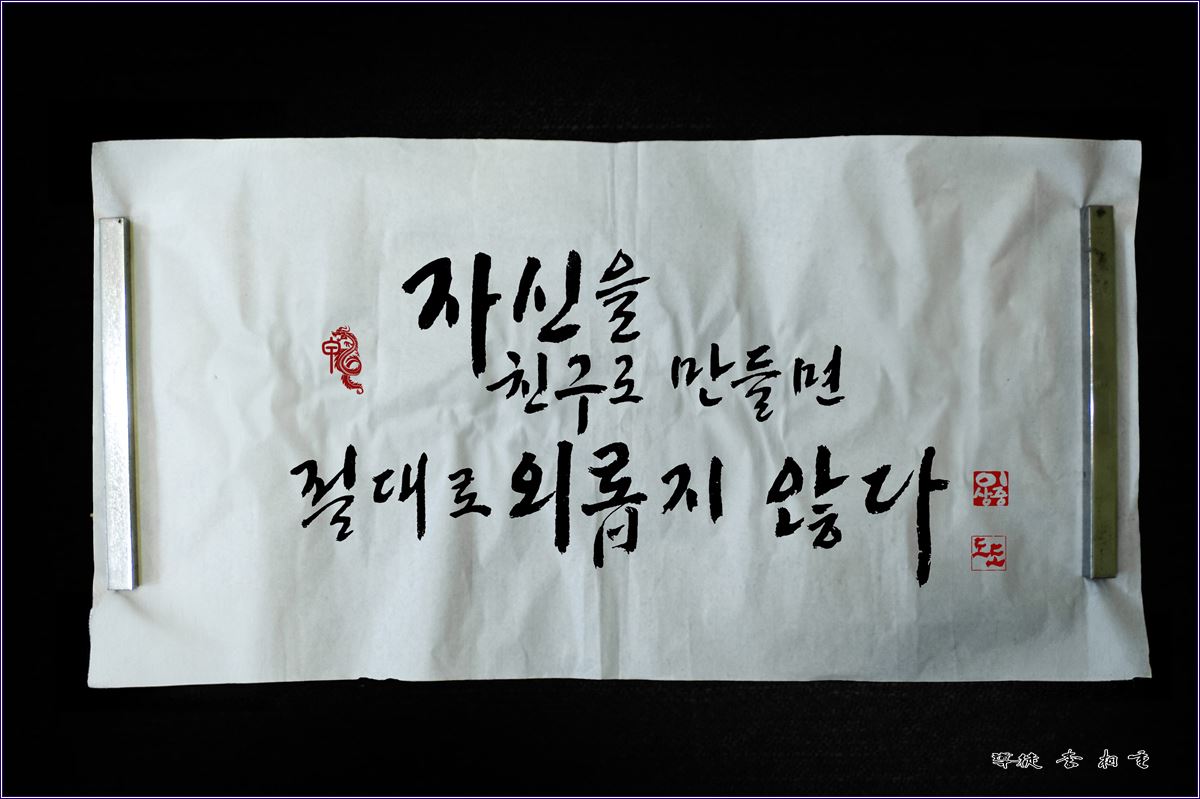 자신을
친구로 만들면
절대로 외롭지 않다
이상중